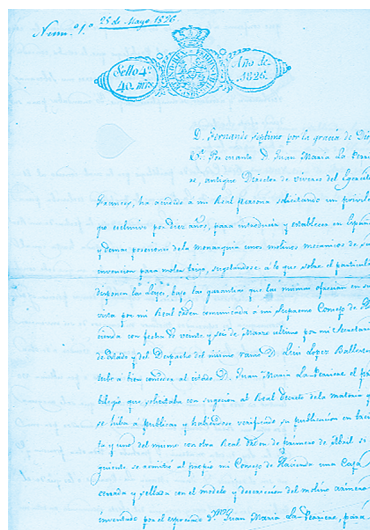 Num.º 1.º 28 de Mayo 1826
Sello 4º
40. mrs.
Año de
1826.
D. Fernando Septimo por la gracia de Dios
Por cuanto D. Juan Maria La Perri
se, antiguo Director de viveres del Egercito
Frances, ha acudido a mi Real persona solicitando un privile
gio exclusivo por diez años, para introducir y establecer en España
y demas posesiones de la monarquia unos molinos mecanicos de su
invencion para moler trigo, sugetandose a lo que sobre el particular
disponen las leyes, bajo las garantias que las mismas ofrecen en su
vista por mi Real orden comunicada a mi Supremo Consejo de Ha
cienda con fecha de veinte y seis de Marzo ultimo por mi Secretario
de Estado y del Despacho del mismo ramo D. Luis Lopez Ballesteros
tube a bien conceder al citado D. Juan Maria La Perriere el pri
bilegio que solicitaba con sugecion al Real decreto de la materia que
se iba a publicar y habiendose verificado su publicacion en trein
ta y uno del mismo con otra Real orden de primero de Abril si
guiente se remitió al propio mi Consejo de Hacienda una Caja
cerrada y sellada con el modelo y descripcion del molino
inventado por el expresado D.n Juan Maria La Perriere, para